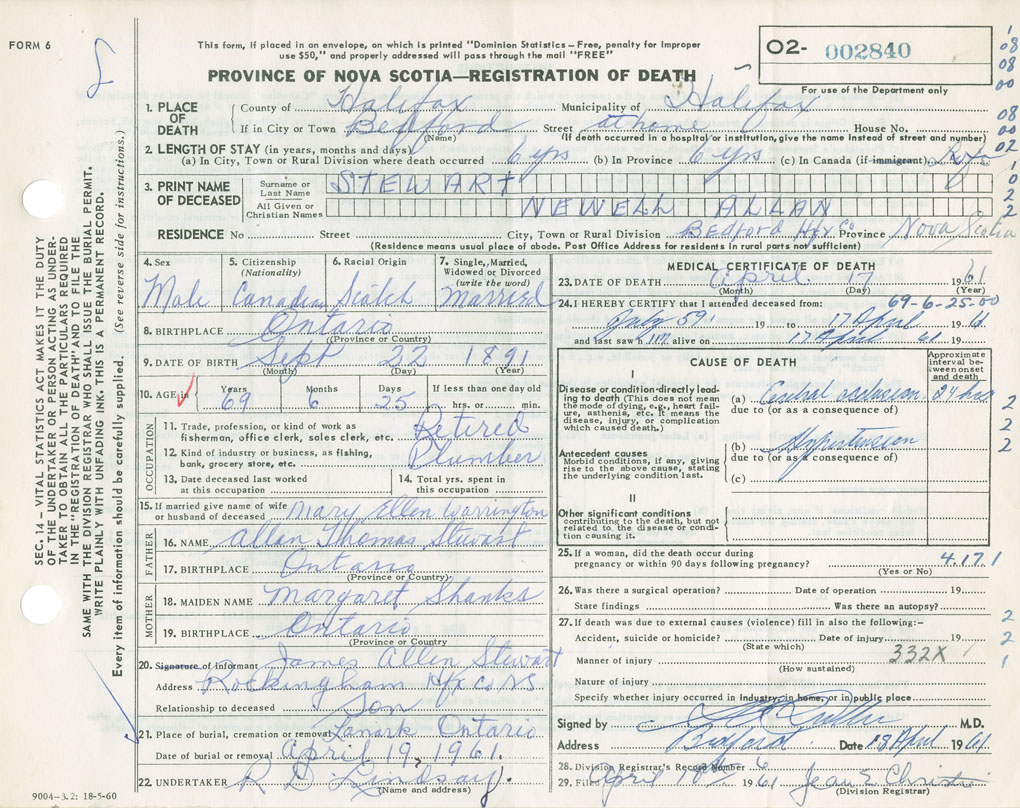 FORM 6
This form, if placed in an envelope, on which is printed "Dominion Statistics – Free, penalty for improper
use $50," and properly addressed will pass through the mail "FREE"
PROVINCE OF NOVA SCOTIA—REGISTRATION OF DEATH
O2- 002840
For use of the Department only
1. PLACE OF DEATH
County of Halifax Municipality of Halifax
If in City or Town Bedford Street at home House No.
(Name) (If death occurred in a hospital or institution, give the name instead of street and number)
2. LENGTH OF STAY (in years, months and days)
(a) In City, Town or Rural Division where death occurred 6 yrs (b) In Province 6 yrs (c) In Canada (if immigrant)
3. PRINT NAME OF DECEASED
Surname or Last Name STEWART
All Given or Christian Names NEWELL ALLAN
RESIDENCE No Street City, Town or Rural Division Bedford Hfx Co Province Nova Scotia
(Residence means usual place of abode. Post Office Address for residents in rural parts not sufficient)
4. Sex Male
5. Citizenship (Nationality) Canadian
6. Racial Origin Scotch
7. Single, Married, Widowed or Divorced (write the word) Married
8. BIRTHPLACE Ontario
(Province or Country)
9. DATE OF BIRTH Sept 22 1891
(Month) (Day) (Year)
10. AGE in Years 69 Months 6 Days 25 If less than one day old hrs. or min.
OCCUPATION
11. Trade, profession, or kind of work as fisherman, office clerk, sales clerk, etc. Retired
12. Kind of industry or business, as fishing, bank, grocery store, etc. Plumber
13. Date deceased last worked at this occupation
14. Total yrs. spent in this occupation
15. If married give name of wife or husband of deceased Mary Ellen Warrington
FATHER
16. NAME Allan Thomas Stewart
17. BIRTHPLACE Ontario
(Province or Country)
MOTHER
18. MAIDEN NAME Margaret Shanks
19. BIRTHPLACE Ontario
(Province or Country
20. Signature of informant James Allen Stewart
Address Rockingham Hfx Co NS
Relationship to deceased Son
21. Place of burial, cremation or removal Lanark Ontario
Date of burial or removal April 19, 1961.
22. UNDERTAKER R D Lindsay.
(Name and address)
9004-3.2: 18-5-60
MEDICAL CERTIFICATE OF DEATH
23. DATE OF DEATH April 17 1961
(Month) (Day) (Year)
69-6-25-00
24. I HEREBY CERTIFY that I attended deceased from:
July 59 19 to 17 April 1961
and last saw him alive on 17 April 61 19
CAUSE OF DEATH
Approximate interval between onset and death
I
Disease or condition directly leading to death (This does not mean the mode of dying, e.g., heart failure, asthenia, etc. It means the disease, injury, or complication which caused death.)
(a) 24 hrs
due to (or as a consequence of)
(b) Hypertension
due to (or as a consequence of)
(c)
Antecedent causes
Morbid conditions, if any, giving rise to the above cause, stating the underlying condition last.
II
Other significant conditions
contributing to the death, but not related to the disease or condition causing it.
25. If a woman, did the death occur during
pregnancy or within 90 days following pregnancy? 4.17.1
(Yes or No)
26. Was there a surgical operation? Date of operation 19
State findings Was there an autopsy?
27. If death was due to external causes (violence) fill in also the following:-
Accident, suicide or homicide? Date of injury 19
(State which) 332X
Manner of injury
(How sustained)
Nature of injury
Specify whether injury occurred in industry, in home, or in public place
Signed by M.D.
Address Bedford Date 18 April 1961
28. Division Registrar's Record Number 6
29. Filed April 18th 1961 Jean E Christie
(Division Registrar)
SEC. 14 – VITAL STATISTICS ACT MAKES IT THE DUTY
OF THE UNDERTAKER OR PERSON ACTING AS UNDERTAKER
TO OBTAIN ALL THE PARTICULARS REQUIRED
IN THE "REGISTRATION OF DEATH" AND TO FILE THE
SAME WITH THE DIVISION REGISTRAR WHO SHALL ISSUE THE BURIAL PERMIT.
WRITE PLAINLY WITH UNFADING INK. THIS IS A PERMANENT RECORD.
Every item of information should be carefully supplied. (See reverse side for instructions.)